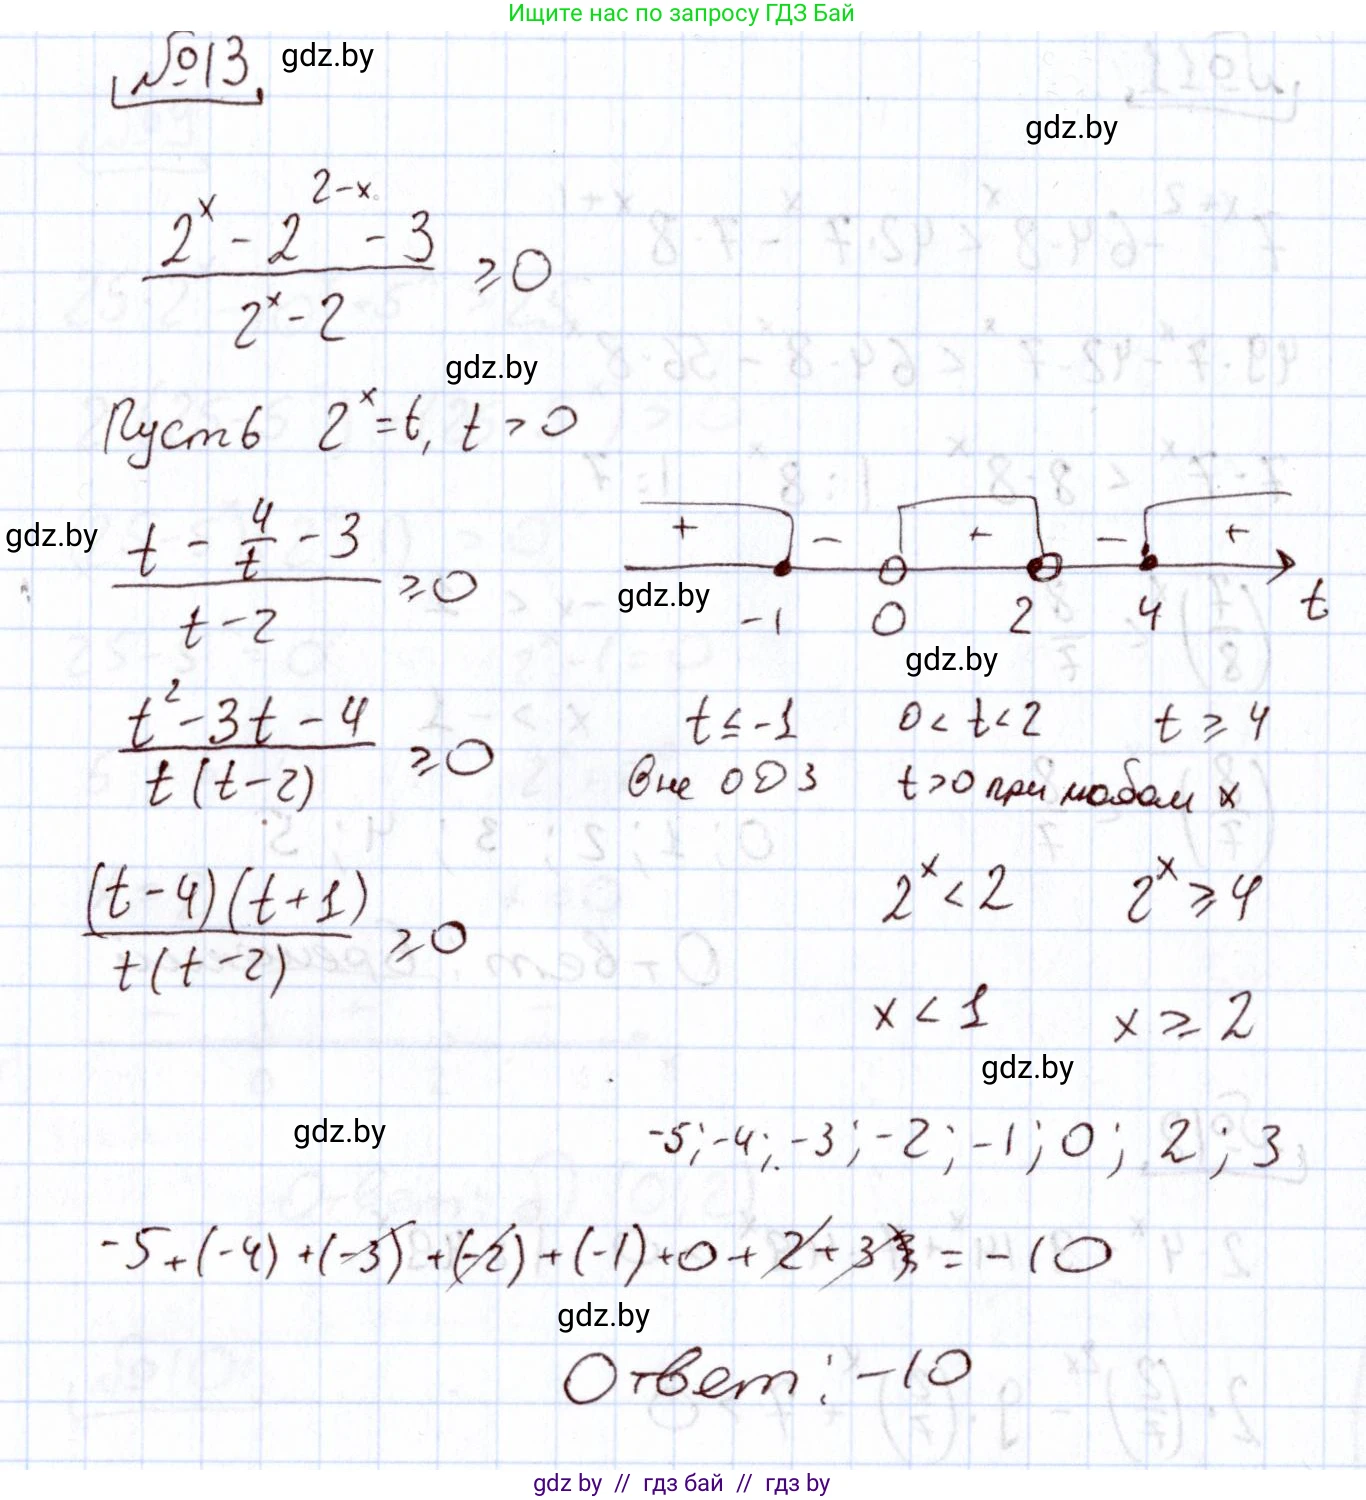 Ищите нас по запросу ГДЗ Бай
№13 gdz.by
gdz.by
(2^x - 2^(2-x) - 3) / (2^x - 2) ≥ 0
gdz.by
Пусть 2^x = t, t > 0
gdz.by
(t - 4/t - 3) / (t - 2) ≥ 0
+ - + - +
gdz.by
-1 0 2 4 t
gdz.by
(t^2 - 3t - 4) / (t(t-2)) ≥ 0
t ≤ -1 0 < t < 2 t ≥ 4
вне ОДЗ t > 0 при любом x
((t-4)(t+1)) / (t(t-2)) ≥ 0
2^x < 2 2^x ≥ 4
x < 1 x ≥ 2
gdz.by
gdz.by
-5; -4; -3; -2; -1; 0; 2; 3
-5 + (-4) + (-3) + (-2) + (-1) + 0 + 2 + 3 = -10
gdz.by
Ответ: -10
gdz.by // гдз бай // гдз by